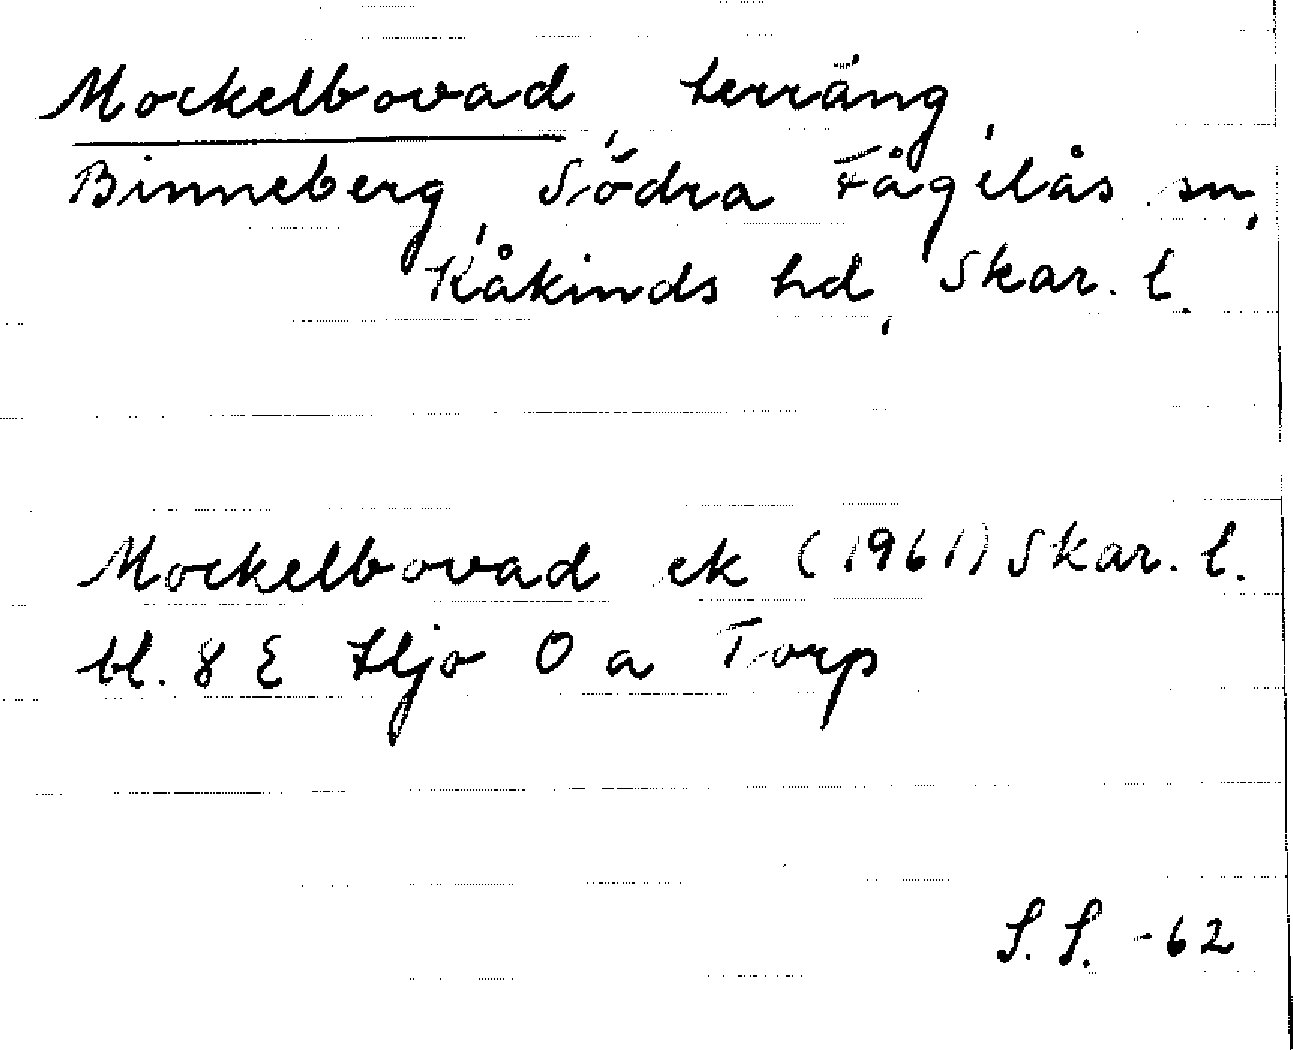 Mockelbovad, terräng,
Binneberg, Södra Fågelås sn,
Kåkinds hd, Skar. l.
Mockelbovad ek (1961) Skar. l.
bl. 8 E Hjo O a Torp
S. S. -62